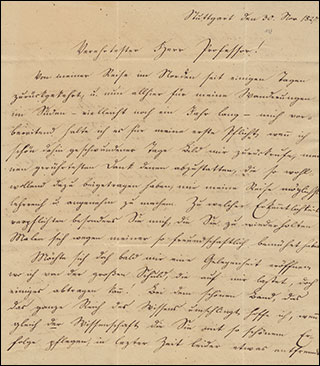 Stuttgart den 30. Nov 184
Verehrtester Herr Professor!
Von meiner Reise im Norden seit einigen Tagen
zurückgekehrt, u nun allhier für meine Wanderungen
im Süden - vielleicht noch ein Jahr lang - mich vor-
bereitend halte ich es für meine erste Pflicht, wenn ich
schön dahin geschwundener Tage Bild mir zurückrufe, mei-
nen gerührtesten Dank denen abzustatten, die so wohl-
wollend dazu beigetragen haben, mir meine Reise möglichst
lehrreich u angenehm zu machen. Zu welcher Erkenntlichkeit
verpflichten besonders Sie mich, der Sie zu wiederholten
Malen sich wegen meiner so freundschaftlich bemühet
Möchte sich doch bald mir eine Gelegenheit eröffnen
wo ich von der großen Schuld, die auf mir lastet, doch
einiges abtragen kann! Bei dem schönen Band, das
das ganze Reich des Wissens umschlingt hoffe ich, wenn
gleich der Wissenschaft, die Sie mit so schönem Er-
folge pflegen, in letzter Zeit leider etwas entfremdet